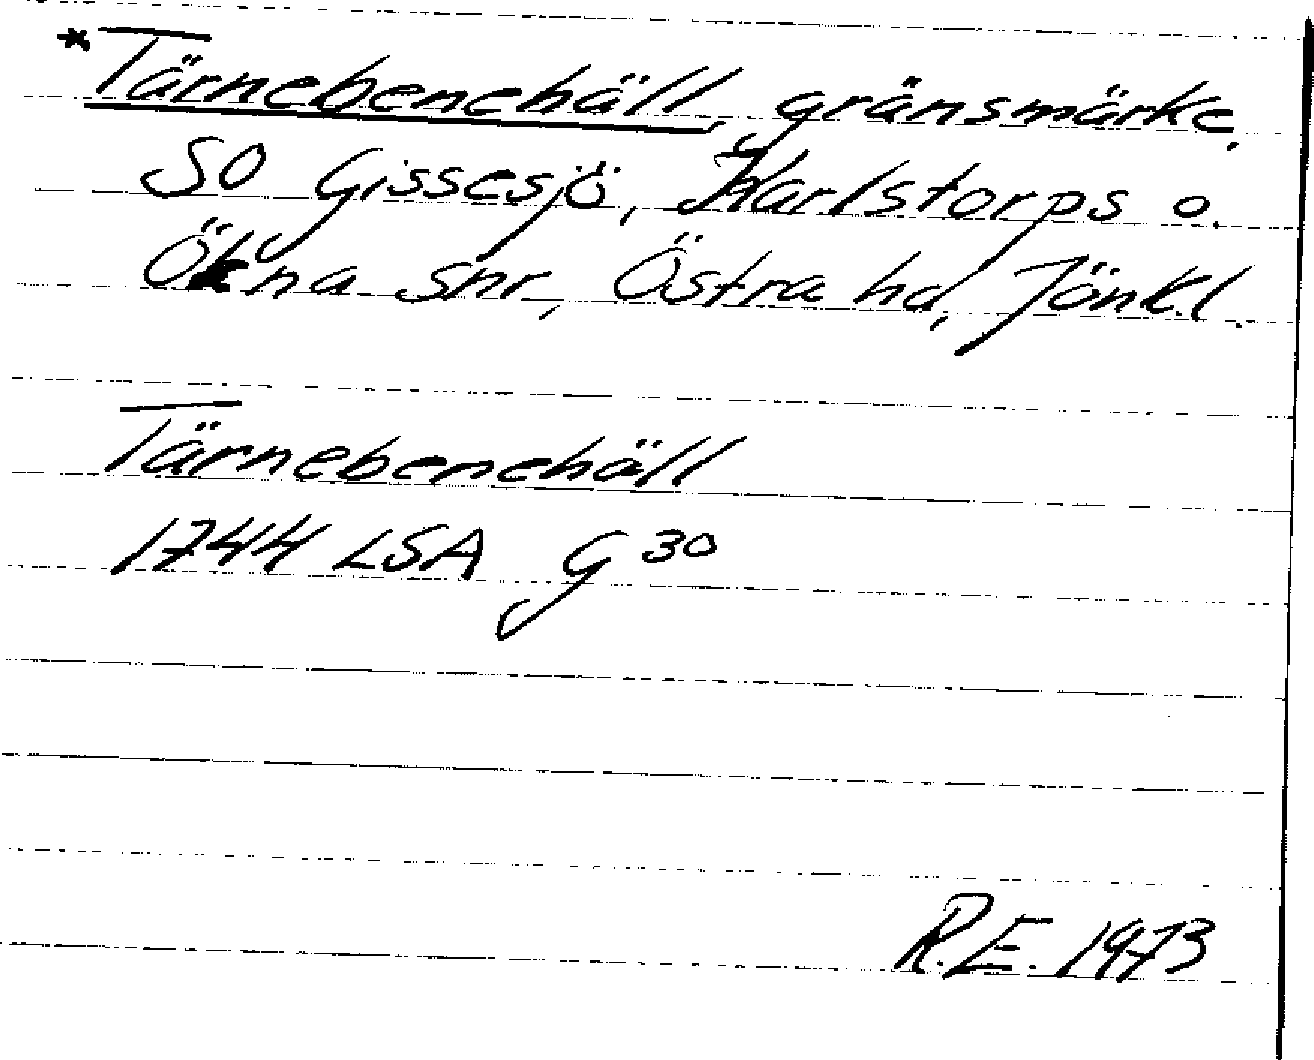 *Tärnebenehäll, gränsmärke,
SO Gissesjö, Karlstorps o.
Ökna snr, Östra hd, Jönk.l.
Tärnebenehäll
1744 LSA G 30
R.E. 1973